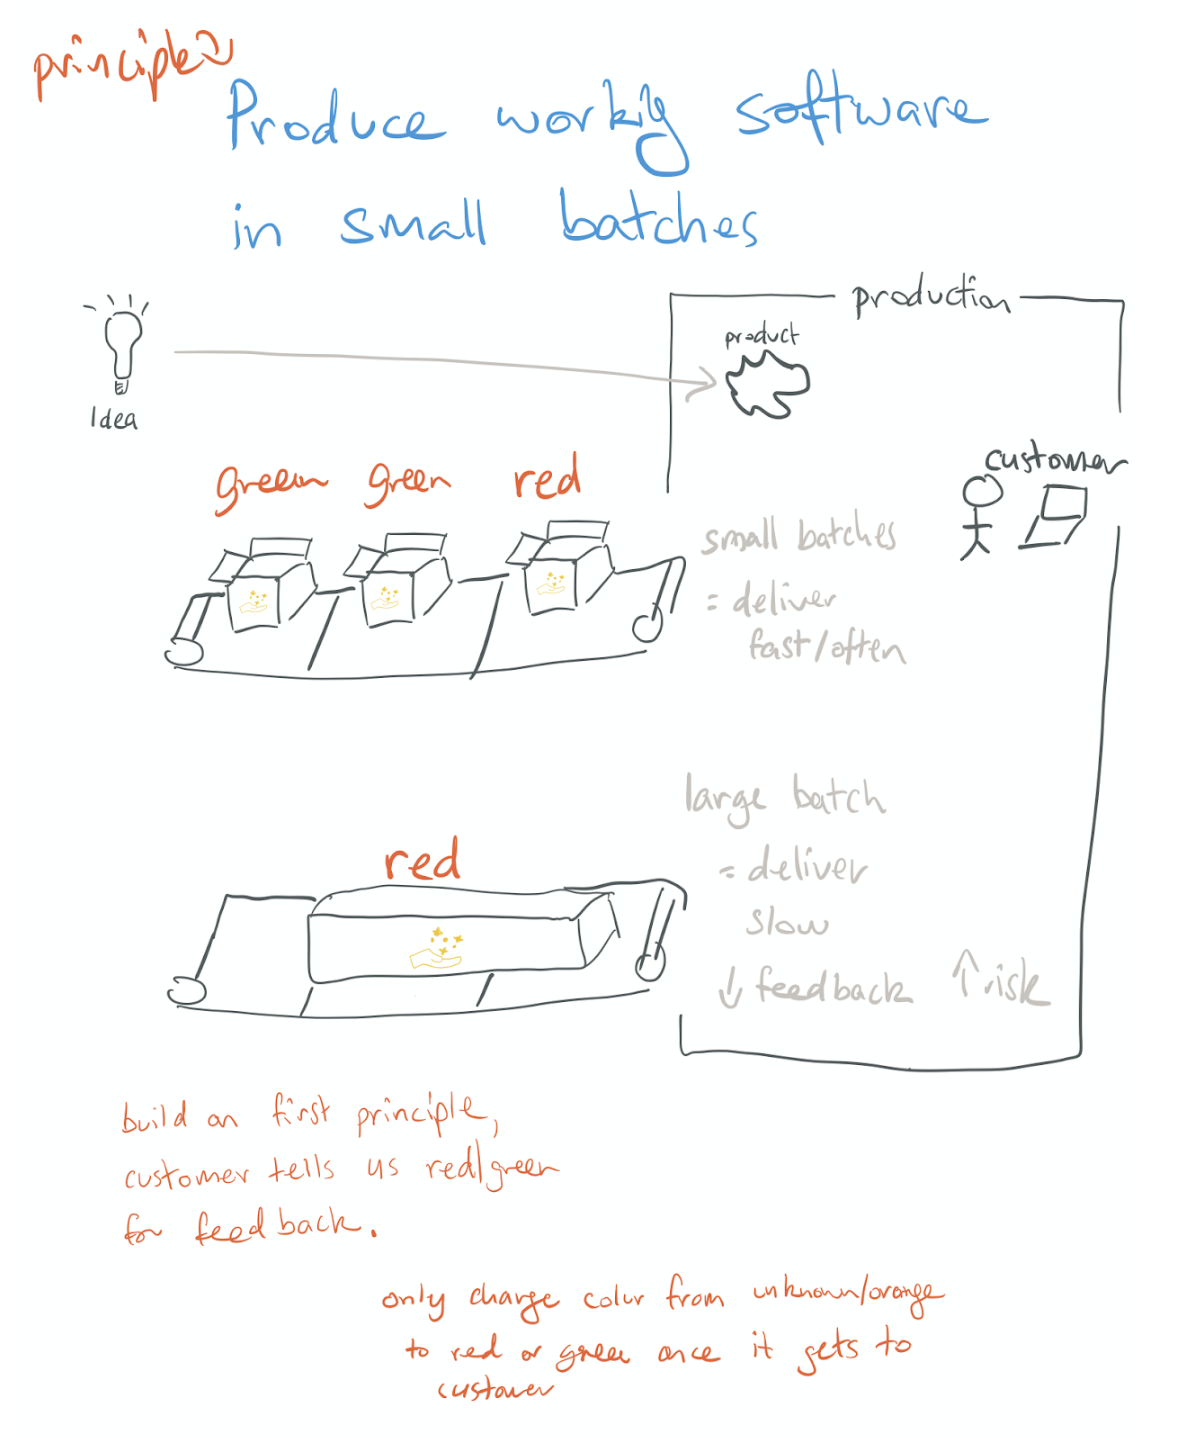 principle 2
Produce working software
in small batches
production
product
Idea
customer
green green red
small batches
= deliver
fast/often
large batch
= deliver
slow
↓ feedback ↑ risk
red
build on first principle,
customer tells us red/green
for feedback.
only change color from unknown/orange
to red or green once it gets to
customer